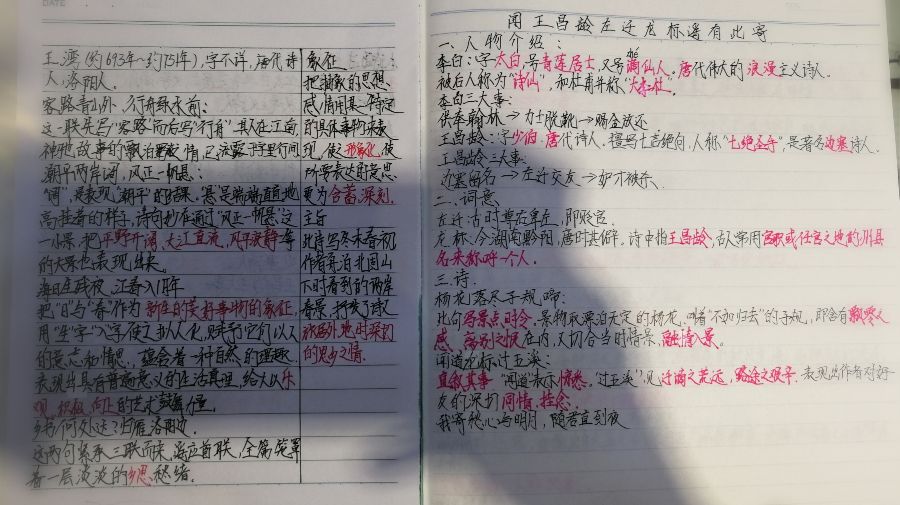 DATE
王湾(约693年-约751年),字不详,唐代诗
人,洛阳人。
客路青山外,行舟绿水前:
这一联先写"客路"而后写"行舟",其人在江南,
神驰故里的漂泊羁旅情已流露于字里行间
潮平两岸阔,风正一帆悬:
"阔",是表现"潮平"的结果。"悬"是端端直直地
高挂着的样子,诗句妙在通过"风正一帆悬"这
一小景,把平野开阔、大江直流、风平浪静等
的大景也表现出来。
海日生残夜,江春入旧年
把"日"与"春"作为新生的美好事物的象征,
用"生"字"入"字使之拟人化,赋予它们以人
的意志和情思,蕴含着一种自然的理趣
表现出具有普遍意义的生活真理,给人以乐
观、积极、向上的艺术鼓舞力量。
乡书何处达?归雁洛阳边。
这两句紧承三联而来,遥应首联,全篇笼罩
着一层淡淡的乡思愁绪。
象征
把抽象的思想
感情用某一特定
的具体事物来表
现,使之形象化,使
所要表达的意思
更为含蓄、深刻。
主旨
此诗写冬末春初
作者舟泊北固山
下时看到的两岸
春景,抒发了诗人
旅居外地时深切
的思乡之情。
闻王昌龄左迁龙标遥有此寄
一、人物介绍:
李白:字太白,号青莲居士,又号谪仙人,唐代伟大的浪漫主义诗人。
被后人称为"诗仙",和杜甫并称"大李杜"。
李白三大事:
供奉翰林→力士脱靴→赐金放还
王昌龄:字少伯,唐代诗人。擅写七言绝句,人称"七绝圣手",是著名边塞诗人。
王昌龄三大事:
边塞闻名→左迁交友→妒才被杀
二、词意
左迁:古时尊右卑左,即贬官。
龙标:今湖南黔阳,唐时甚僻。诗中指王昌龄,古人常用官职或任官之地的州县
名来称呼一个人。
三、诗
杨花落尽子规啼:
此句写景点时令,景物取漂泊无定的杨花,叫着"不如归去"的子规,即含有飘零之
感、离别之恨在内,又切合当时情景,融情入景。
闻道龙标过五溪:
直叙其事,"闻道"表示惊愁。"过五溪",见迁谪之荒远,路途之艰辛,表现出作者对好
友的深切同情、挂念。
我寄愁心与明月,随君直到夜